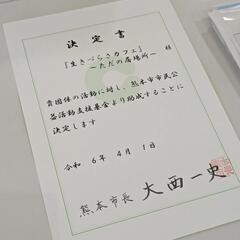 決定書
『生きづらさカフェ』 様
～ただの居場所～
貴団体の活動に対し、熊本市市民公
益活動支援基金より助成することに
決定します
令和 6年 4月 1日
熊本市長 大西一史